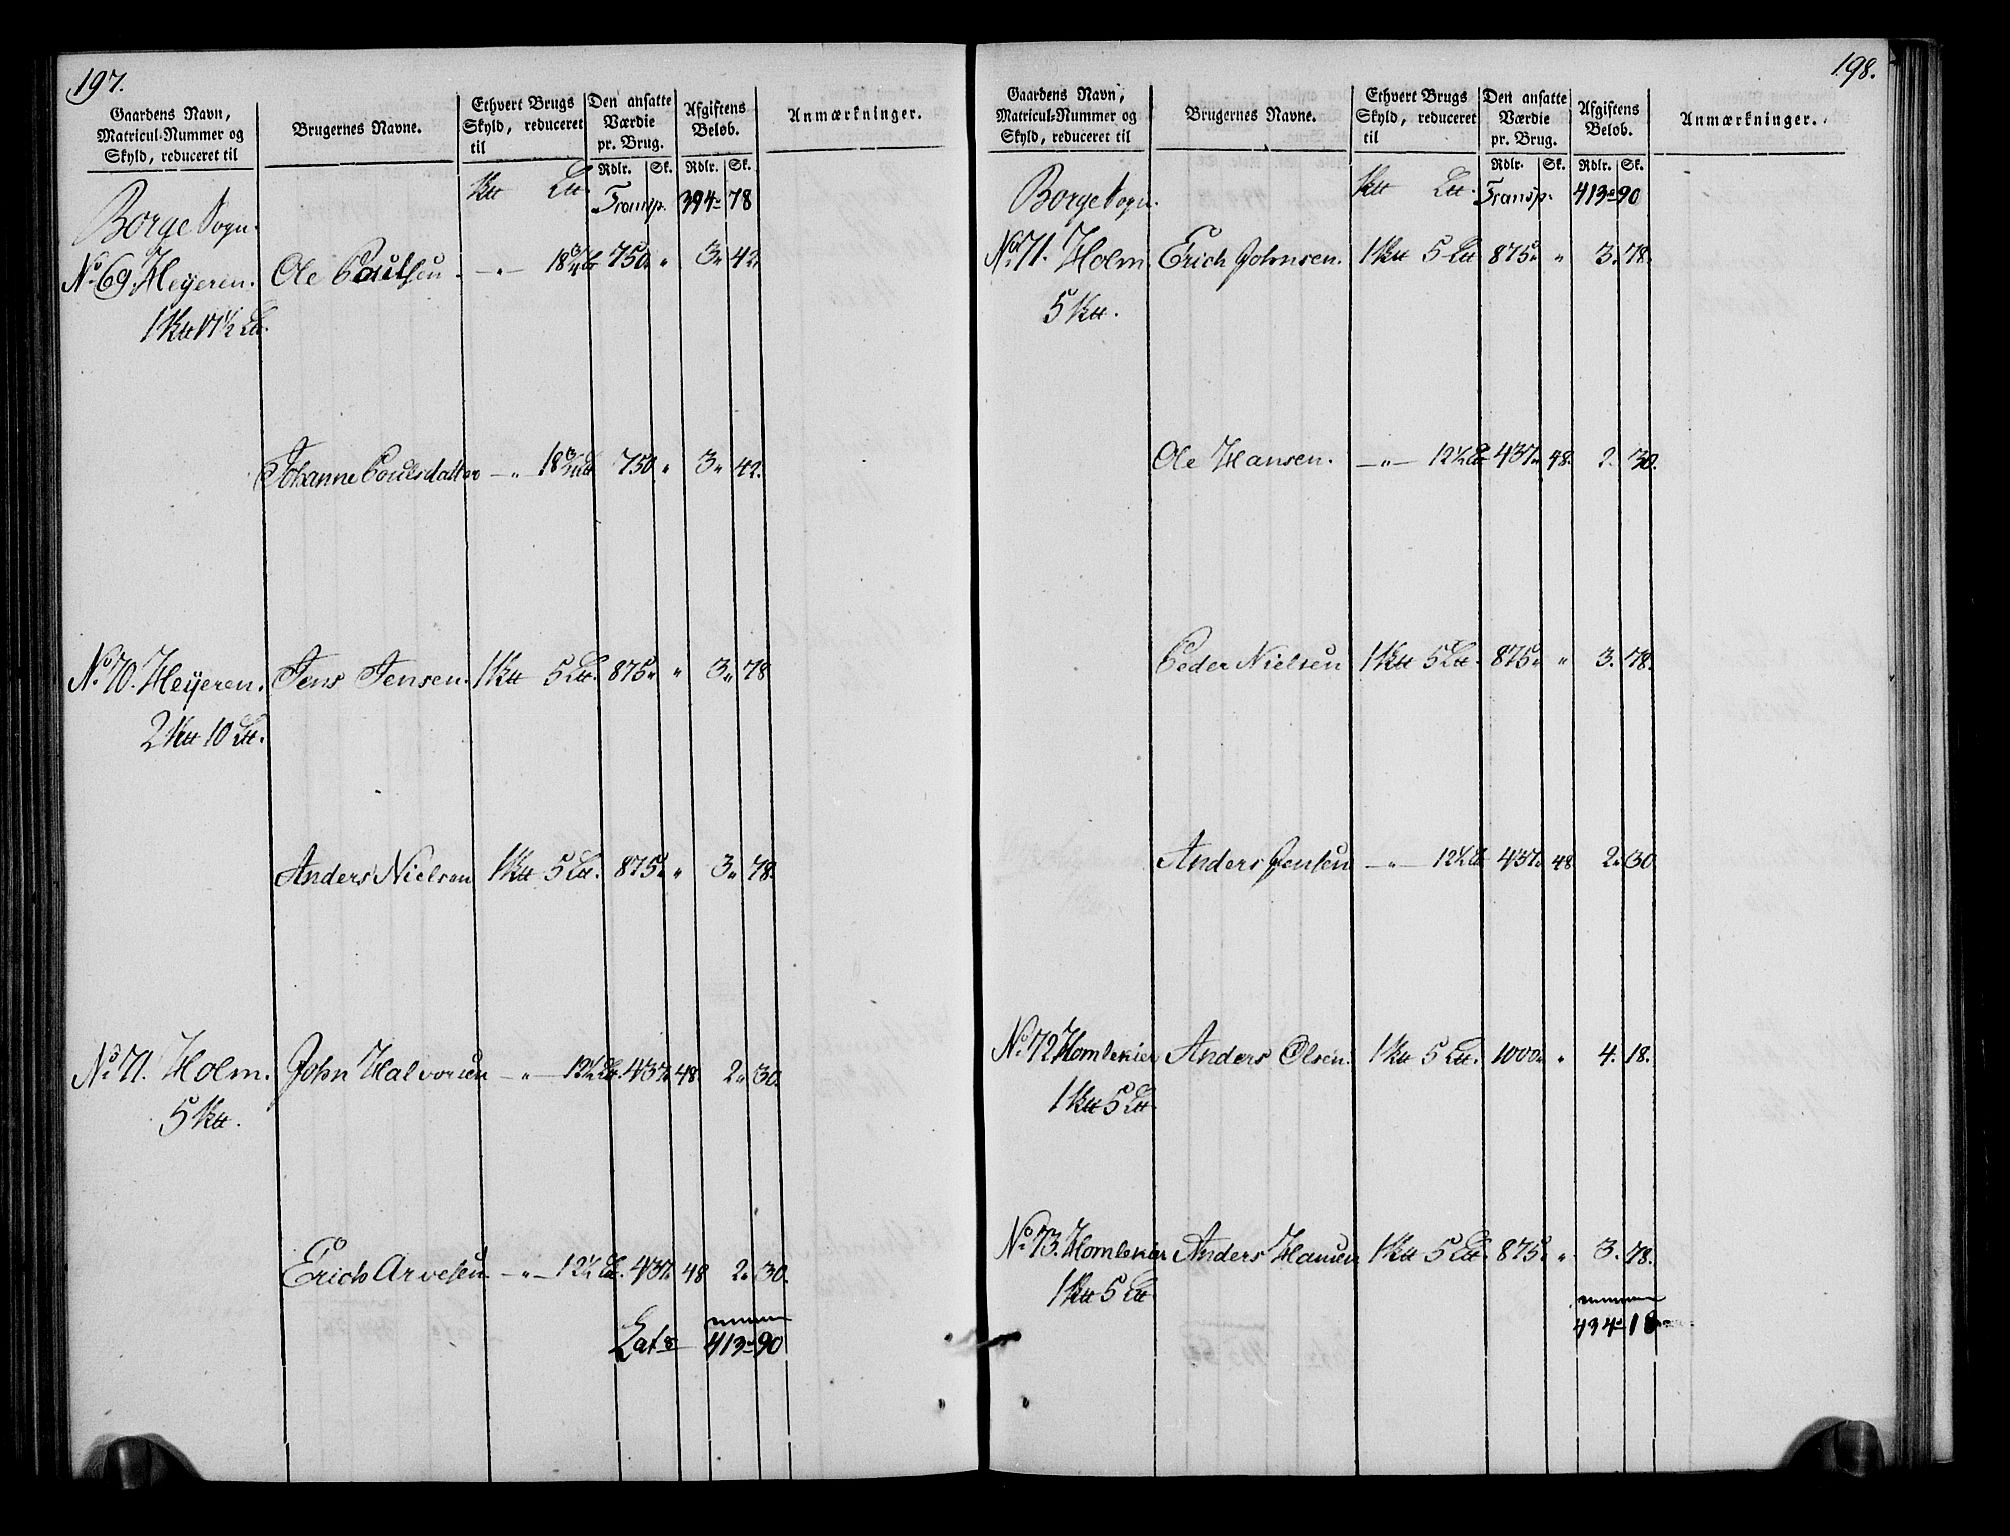 197.
Gaardens Navn, Matricul-Nummer og Skyld, reduceret til
Brugernes Navne.
Ethvert Brugs Skyld, reduceret til
Den ansatte Værdie pr. Brug.
Rdlr. Sk.
Afgiftens Beløb.
Rdlr. Sk.
Anmærkninger.
Borge Sogn. Ktt Ltt. Transp. 394 „ 78
No. 69. Heyeren. Ole Poulsen. — „ — 18 3/4 Ltt 750 „ „ 3 „ 42.
1 Ktt 17 1/2 Ltt.
Johanne Poulsdatter — „ 18 3/4 Ltt 750 „ 3 „ 42.
No. 70. Heyeren. Jens Jensen. 1 Ktt 5 Ltt. 875 „ „ 3 „ 78
2 Ktt 10 Ltt.
Anders Nielsen 1 Ktt 5 Ltt. 875 „ „ 3 „ 78.
No. 71. Holm. John Halvorsen — „ — 12 1/2 Ltt. 437 „ 48 2 „ 30.
5 Ktt.
Erich Arvesen — „ — 12 1/2 Ltt. 437 „ 48 2 „ 30.
Lats 413 „ 90
198.
Gaardens Navn, Matricul-Nummer og Skyld, reduceret til
Brugernes Navne.
Ethvert Brugs Skyld, reduceret til
Den ansatte Værdie pr. Brug.
Rdlr. Sk.
Afgiftens Beløb.
Rdlr. Sk.
Anmærkninger.
Borge Sogn. Ktt Ltt. Transp. 413 „ 90
No. 71. Holm. Erich Johnsen. 1 Ktt 5 Ltt 875 „ „ 3. 78.
5 Ktt.
Ole Hansen. — „ — 12 1/2 Ltt 437 „ 48. 2. 30.
Peder Nielsen 1 Ktt 5 Ltt. 875 „ „ 3. 78.
Anders Jensen — „ — 12 1/2 Ltt 437 „ 48 2 „ 30
No. 72 Homlekier Anders Olsen. 1 Ktt 5 Ltt. 1000 „ „ 4. 18.
1 Ktt 5 Ltt
No. 73. Homlekier Anders Hansen 1 Ktt 5 Ltt. 875 „ „ 3. 78.
1 Ktt 5 Ltt
434 „ 18